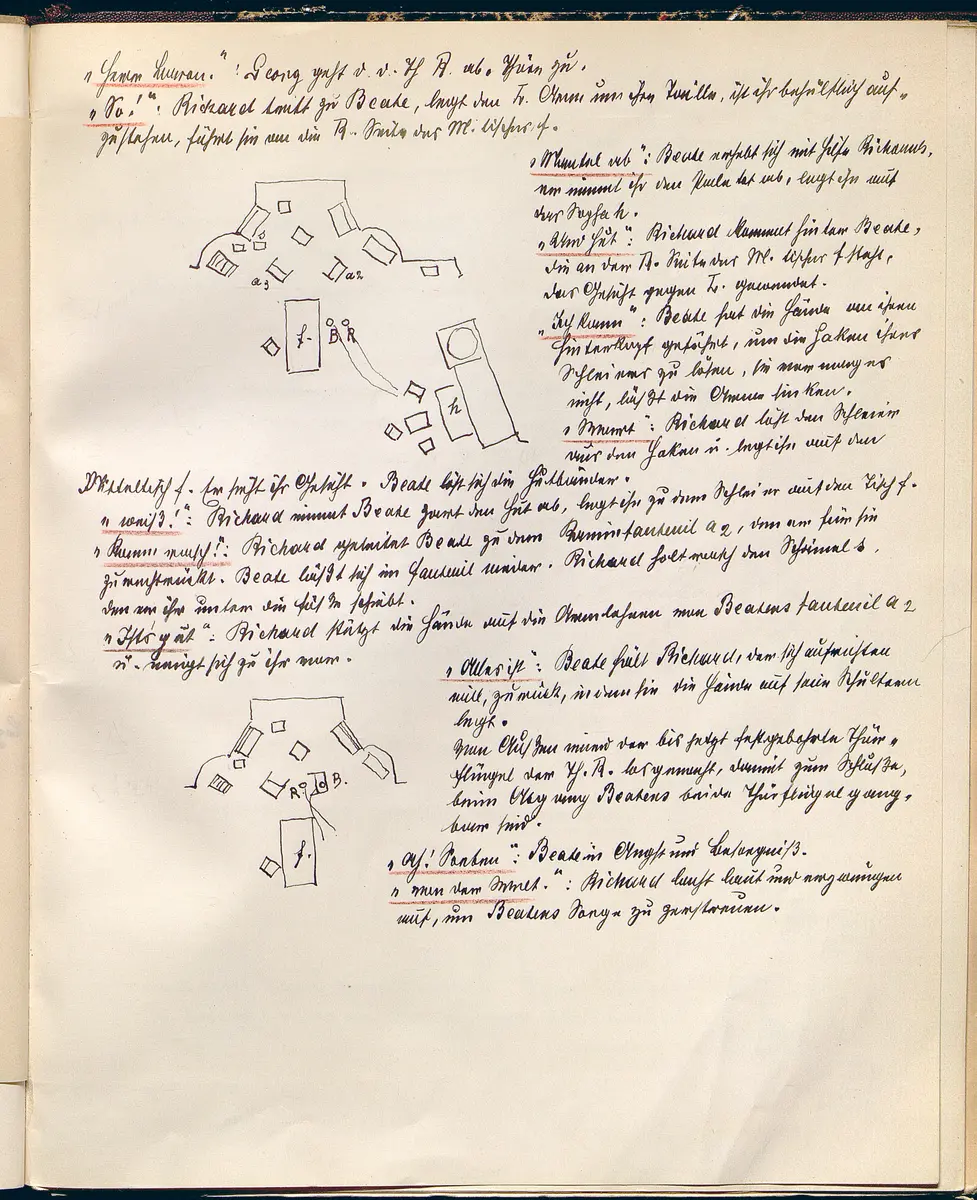 „Herr Baron.“: Georg geht d. d. Th. R. ab. Thüre zu.
„So!“: Richard tritt zu Beate, legt den L. Arm um ihre Taille, ist ihr behülflich auf-
zustehen, führt sie an die R. Seite des M. tisches f.
„Mantel ab“: Beate erhebt sich mit Hilfe Richards,
er nimmt ihr den Paletot ab, legt ihn auf
das Sopha h.
„Und Hut“: Richard kommt hinter Beate,
die an der R. Seite des M. tisches f steht,
das Gesicht gegen L. gewendet.
a1
a2
f.
B R
„Ich kann“: Beate hat die Hände an ihren
Hinterkopf geführt, um die Haken ihres
Schleiers zu lösen, sie vermag es
nicht, läßt die Arme sinken.
h
„Wart“: Richard löst den Schleier
aus den Haken u. legt ihn auf den
Mitteltisch f. Er sieht ihr Gesicht. Beate löst sich die Hutbänder.
„weiß!“: Richard nimmt Beate zart den Hut ab, legt ihn zu dem Schleier auf den Tisch f.
„Komm rasch!“: Richard geleitet Beate zu dem Kaminfauteuil a2, den er für sie
zurechtrückt. Beate läßt sich im Fauteuil nieder. Richard holt rasch den Schemel s,
den er ihr unter die Füße schiebt.
„Ists gut“: Richard stützt die Hände auf die Armlehnen von Beatens Fauteuil a2
u. neigt sich zu ihr vor.
„Alles ist“: Beate hält Richard, der sich aufrichten
will, zurück, indem sie die Hände auf seine Schultern
legt.
Von Außen wird der bis jetzt festgebohrte Thür-
flügel der Th. R. losgemacht, damit zum Schluße,
beim Abgang Beatens beide Thürflügel gang-
bar seid.
R. B.
f.
„Ah! Sorben“: Beate in Angst und Besorgniß.
„von der Welt.“: Richard lacht laut und erzwungen
auf, um Beatens Sorge zu zerstreuen.